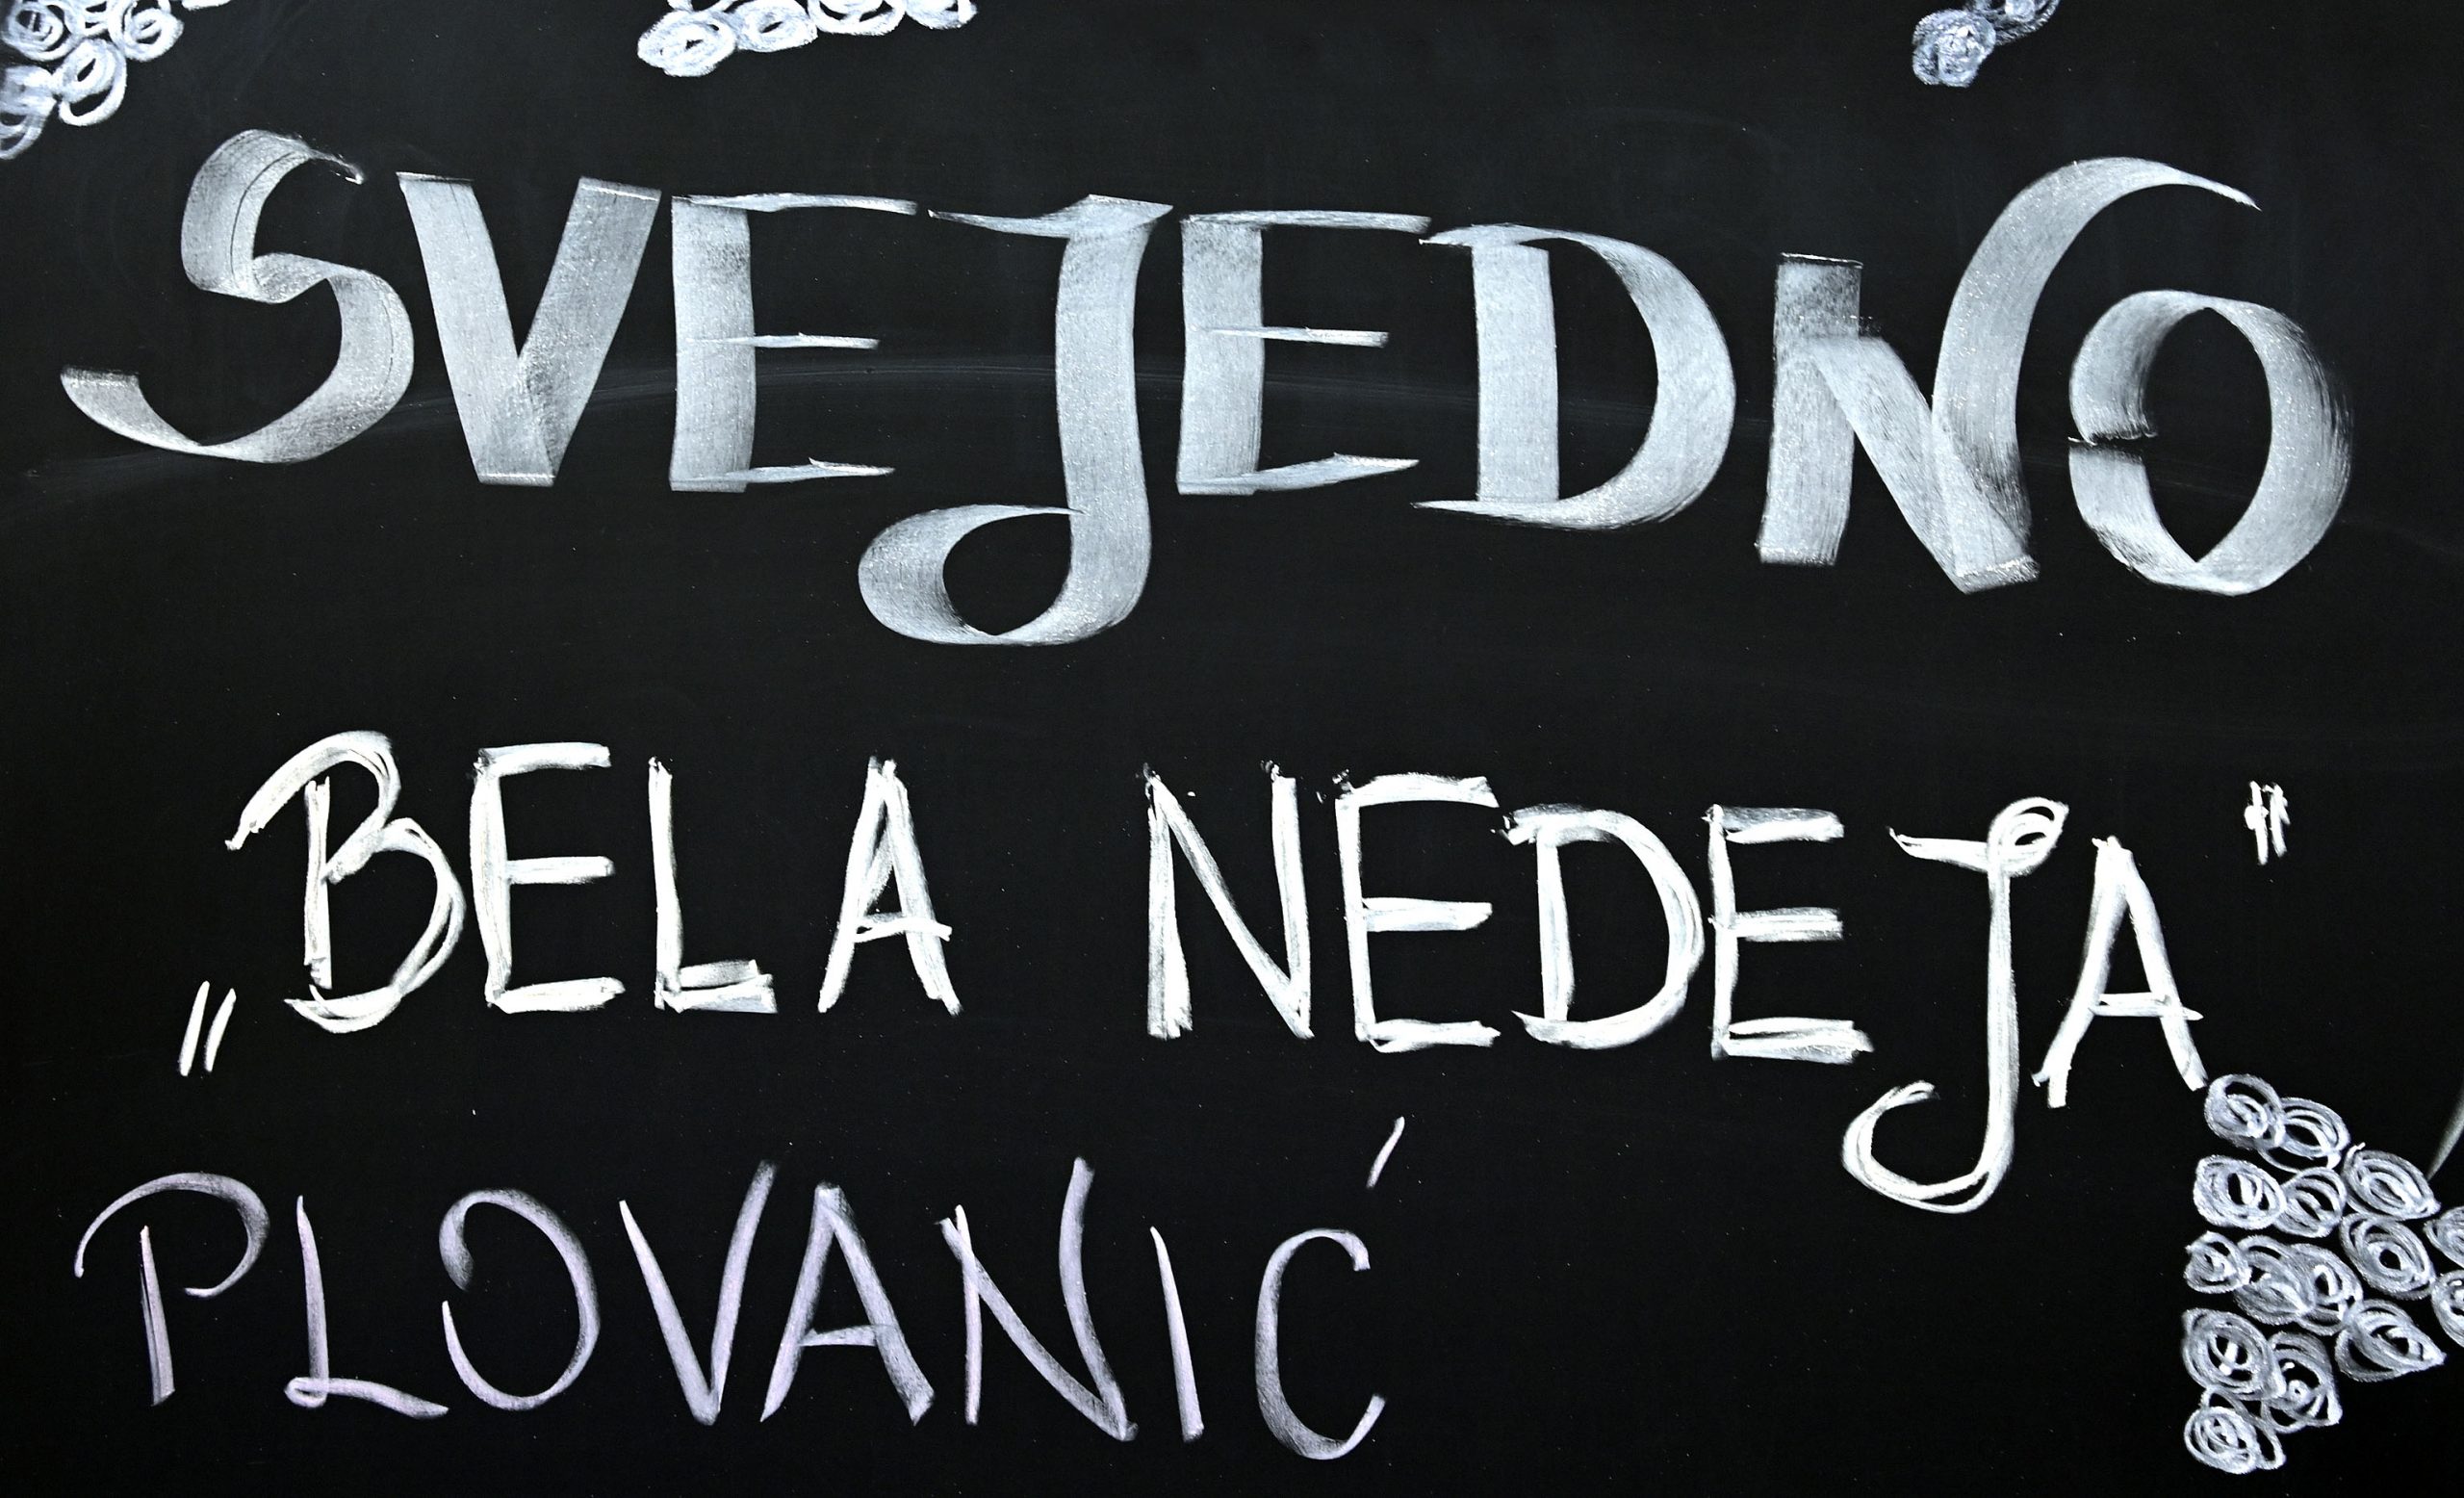 SVEJEDNO
„BELA NEDEJA"
PLOVANIĆ